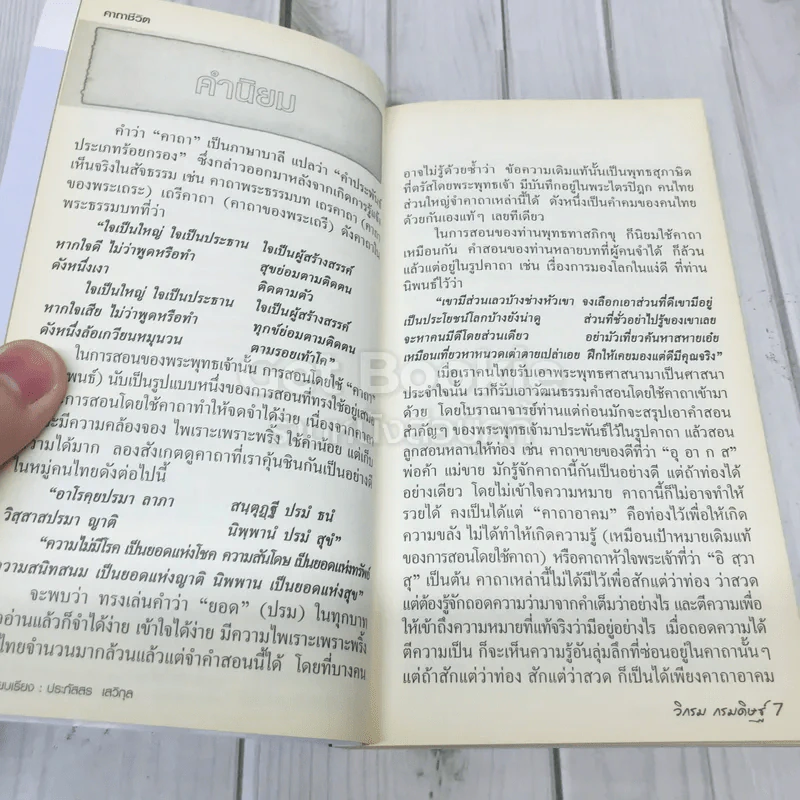 คาถาชีวิต
คำนิยม
คำว่า “คาถา” เป็นภาษาบาลี แปลว่า “คำประพันธ์
ประเภทร้อยกรอง” ซึ่งกล่าวออกมาหลังจากเกิดการรู้แจ้ง
เห็นจริงในสัจธรรม เช่น คาถาพระธรรมบท เถรคาถา (คาถา
ของพระเถระ) เถรีคาถา (คาถาของพระเถรี) ดังคาถาใน
พระธรรมบทที่ว่า
“ใจเป็นใหญ่ ใจเป็นประธาน ใจเป็นผู้สร้างสรรค์
หากใจดี ไม่ว่าพูดหรือทำ สุขย่อมตามติดตน
ดังหนึ่งเงา ติดตามตัว
ใจเป็นใหญ่ ใจเป็นประธาน ใจเป็นผู้สร้างสรรค์
หากใจเสีย ไม่ว่าพูดหรือทำ ทุกข์ย่อมตามติดตน
ดังหนึ่งล้อเกวียนหมุนวน ตามรอยเท้าโค”
ในการสอนของพระพุทธเจ้านั้น การสอนโดยใช้ “คาถา”
พันธ์) นับเป็นรูปแบบหนึ่งของการสอนที่ทรงใช้อยู่เสมอ
การสอนโดยใช้คาถาทำให้จดจำได้ง่าย เนื่องจากคาถา
ะมีความคล้องจอง ไพเราะเพราะพริ้ง ใช้คำน้อย แต่เก็บ
วามได้มาก ลองสังเกตดูคาถาที่เราคุ้นชินกันเป็นอย่างดี
ในหมู่คนไทยดังต่อไปนี้
“อาโรคฺยปรมา ลาภา สนฺตุฏฺฐี ปรมํ ธนํ
วิสฺสาสปรมา ญาติ นิพฺพานํ ปรมํ สุขํ”
“ความไม่มีโรค เป็นยอดแห่งโชค ความสันโดษ เป็นยอดแห่งทรัพย์
วามสนิทสนม เป็นยอดแห่งญาติ นิพพาน เป็นยอดแห่งสุข”
จะพบว่า ทรงเล่นคำว่า “ยอด” (ปรม) ในทุกบาท
อ่านแล้วก็จำได้ง่าย เข้าใจได้ง่าย มีความไพเราะเพราะพริ้ง
ไทยจำนวนมากล้วนแล้วแต่จำคำสอนนี้ได้ โดยที่บางคน
ยบเรียง : ประภัสสร เสวิกุล
อาจไม่รู้ด้วยซ้ำว่า ข้อความเดิมแท้นั้นเป็นพุทธสุภาษิต
ที่ตรัสโดยพระพุทธเจ้า มีบันทึกอยู่ในพระไตรปิฎก คนไทย
ส่วนใหญ่จำคาถาเหล่านี้ได้ ดังหนึ่งเป็นคำคมของคนไทย
ด้วยกันเองแท้ๆ เลยทีเดียว
ในการสอนของท่านพุทธทาสภิกขุ ก็นิยมใช้คาถา
เหมือนกัน คำสอนของท่านหลายบทที่ผู้คนจำได้ ก็ล้วน
แล้วแต่อยู่ในรูปคาถา เช่น เรื่องการมองโลกในแง่ดี ที่ท่าน
นิพนธ์ไว้ว่า
“เขามีส่วนเลวบ้างช่างหัวเขา จงเลือกเอาส่วนที่ดีเขามีอยู่
เป็นประโยชน์โลกบ้างยังน่าดู ส่วนที่ชั่วอย่าไปรู้ของเขาเลย
จะหาคนมีดีโดยส่วนเดียว อย่ามัวเที่ยวค้นหาสหายเอ๋ย
เหมือนเที่ยวหาหนวดเต่าตายเปล่าเอย ฝึกให้เคยมองแต่ดีมีคุณจริง”
เมื่อเราคนไทยรับเอาพระพุทธศาสนามาเป็นศาสนา
ประจำใจนั้น เราก็รับเอาวัฒนธรรมคำสอนโดยใช้คาถาเข้ามา
ด้วย โดยโบราณาจารย์ท่านแต่ก่อนมักจะสรุปเอาคำสอน
สำคัญๆ ของพระพุทธเจ้ามาประพันธ์ไว้ในรูปคาถา แล้วสอน
ลูกสอนหลานให้ท่อง เช่น คาถาขายของดีที่ว่า “อุ อา ก ส”
พ่อค้า แม่ขาย มักรู้จักคาถานี้กันเป็นอย่างดี แต่ถ้าท่องได้
อย่างเดียว โดยไม่เข้าใจความหมาย คาถานี้ก็ไม่อาจทำให้
รวยได้ คงเป็นได้แต่ “คาถาอาคม” คือท่องไว้เพื่อให้เกิด
ความขลัง ไม่ได้ทำให้เกิดความรู้ (เหมือนเป้าหมายเดิมแท้
ของการสอนโดยใช้คาถา) หรือคาถาหัวใจพระเจ้าที่ว่า “อิ สฺวา
สุ” เป็นต้น คาถาเหล่านี้ไม่ได้มีไว้เพื่อสักแต่ว่าท่อง ว่าสวด
แต่ต้องรู้จักถอดความว่ามาจากคำเต็มว่าอย่างไร และตีความเพื่อ
ให้เข้าถึงความหมายที่แท้จริงว่ามีอยู่อย่างไร เมื่อถอดความได้
ตีความเป็น ก็จะเห็นความรู้อันลุ่มลึกที่ซ่อนอยู่ในคาถานั้นๆ
แต่ถ้าสักแต่ว่าท่อง สักแต่ว่าสวด ก็เป็นได้เพียงคาถาอาคม
วิกรม กรมดิษฐ์ 7